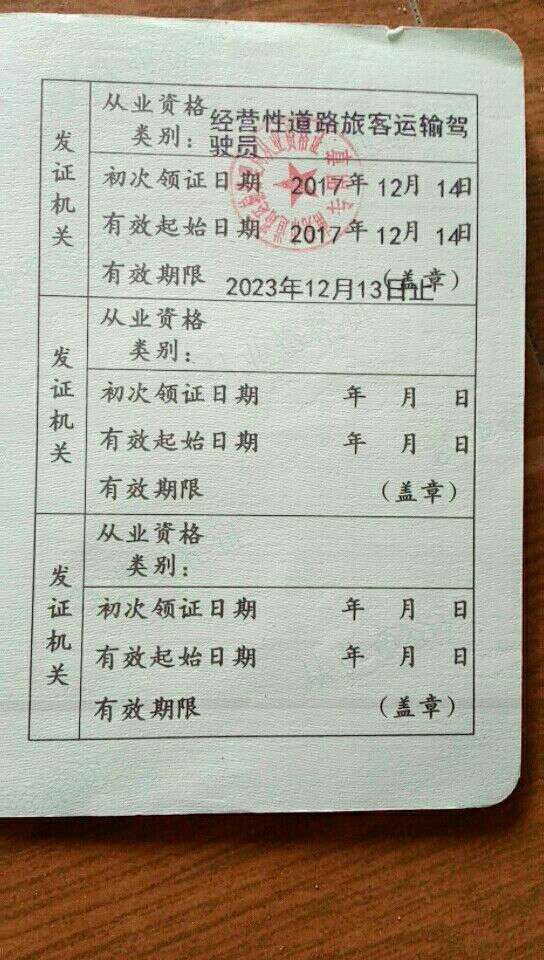 发证机关
从业资格
类别：
经营性道路旅客运输驾
驶员
初次领证日期 2017年12月14日
有效起始日期 2017年12月14日
有效期限 2023年12月13日止
（盖章）
发证机关
从业资格
类别：
初次领证日期 年 月 日
有效起始日期 年 月 日
有效期限 （盖章）
发证机关
从业资格
类别：
初次领证日期 年 月 日
有效起始日期 年 月 日
有效期限 （盖章）